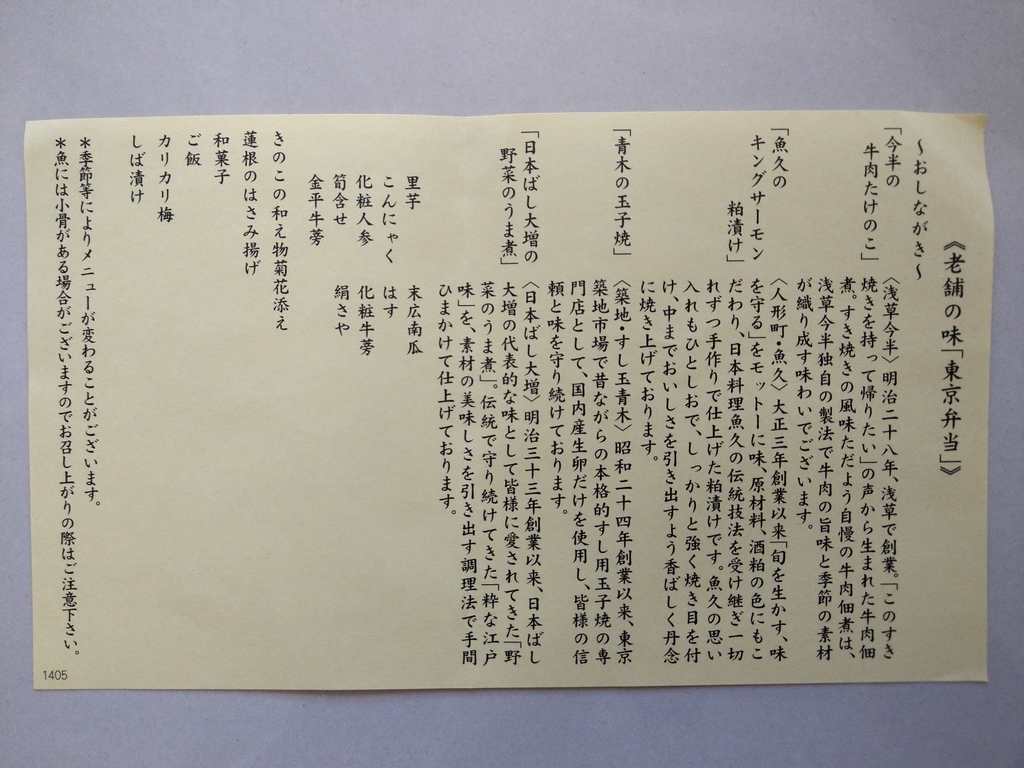 《老舗の味「東京弁当」》
～おしながき～
「今半の
牛肉たけのこ」
〈浅草今半〉明治二十八年、浅草で創業。「このすき
焼きを持って帰りたい」の声から生まれた牛肉佃
煮。すき焼きの風味ただよう自慢の牛肉佃煮は、
浅草今半独自の製法で牛肉の旨味と季節の素材
が織り成す味わいでございます。
「魚久の
キングサーモン
粕漬け」
〈人形町・魚久〉大正三年創業以来「旬を生かす、味
を守る」をモットーに味、原材料、酒粕の色にもこ
だわり、日本料理魚久の伝統技法を受け継ぎ一切
れずつ手作りで仕上げた粕漬けです。魚久の思い
入れもひとしおで、しっかりと強く焼き目を付
け、中までおいしさを引き出すよう香ばしく丹念
に焼き上げております。
「青木の玉子焼」
〈築地・すし玉青木〉昭和二十四年創業以来、東京
築地市場で昔ながらの本格的すし用玉子焼の専
門店として、国内産生卵だけを使用し、皆様の信
頼と味を守り続けております。
「日本ばし大増の
野菜のうま煮」
〈日本ばし大増〉明治三十三年創業以来、日本ばし
大増の代表的な味として皆様に愛されてきた「野
菜のうま煮」。伝統で守り続けてきた「粋な江戸
味」を、素材の美味しさを引き出す調理法で手間
ひまかけて仕上げております。
里芋　末広南瓜
こんにゃく　はす
化粧人参　化粧牛蒡
筍含せ　絹さや
金平牛蒡
きのこの和え物菊花添え
蓮根のはさみ揚げ
和菓子
ご飯
カリカリ梅
しば漬け
＊季節等によりメニューが変わることがございます。
＊魚には小骨がある場合がございますのでお召し上がりの際はご注意下さい。
1405